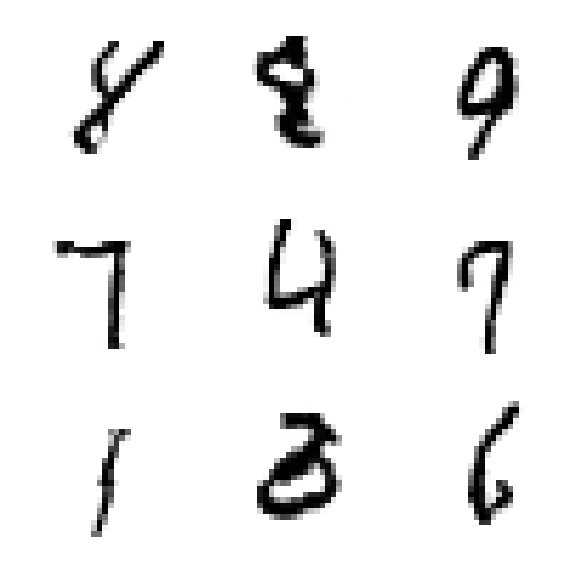 8 8 9
7 4 7
1 8 6